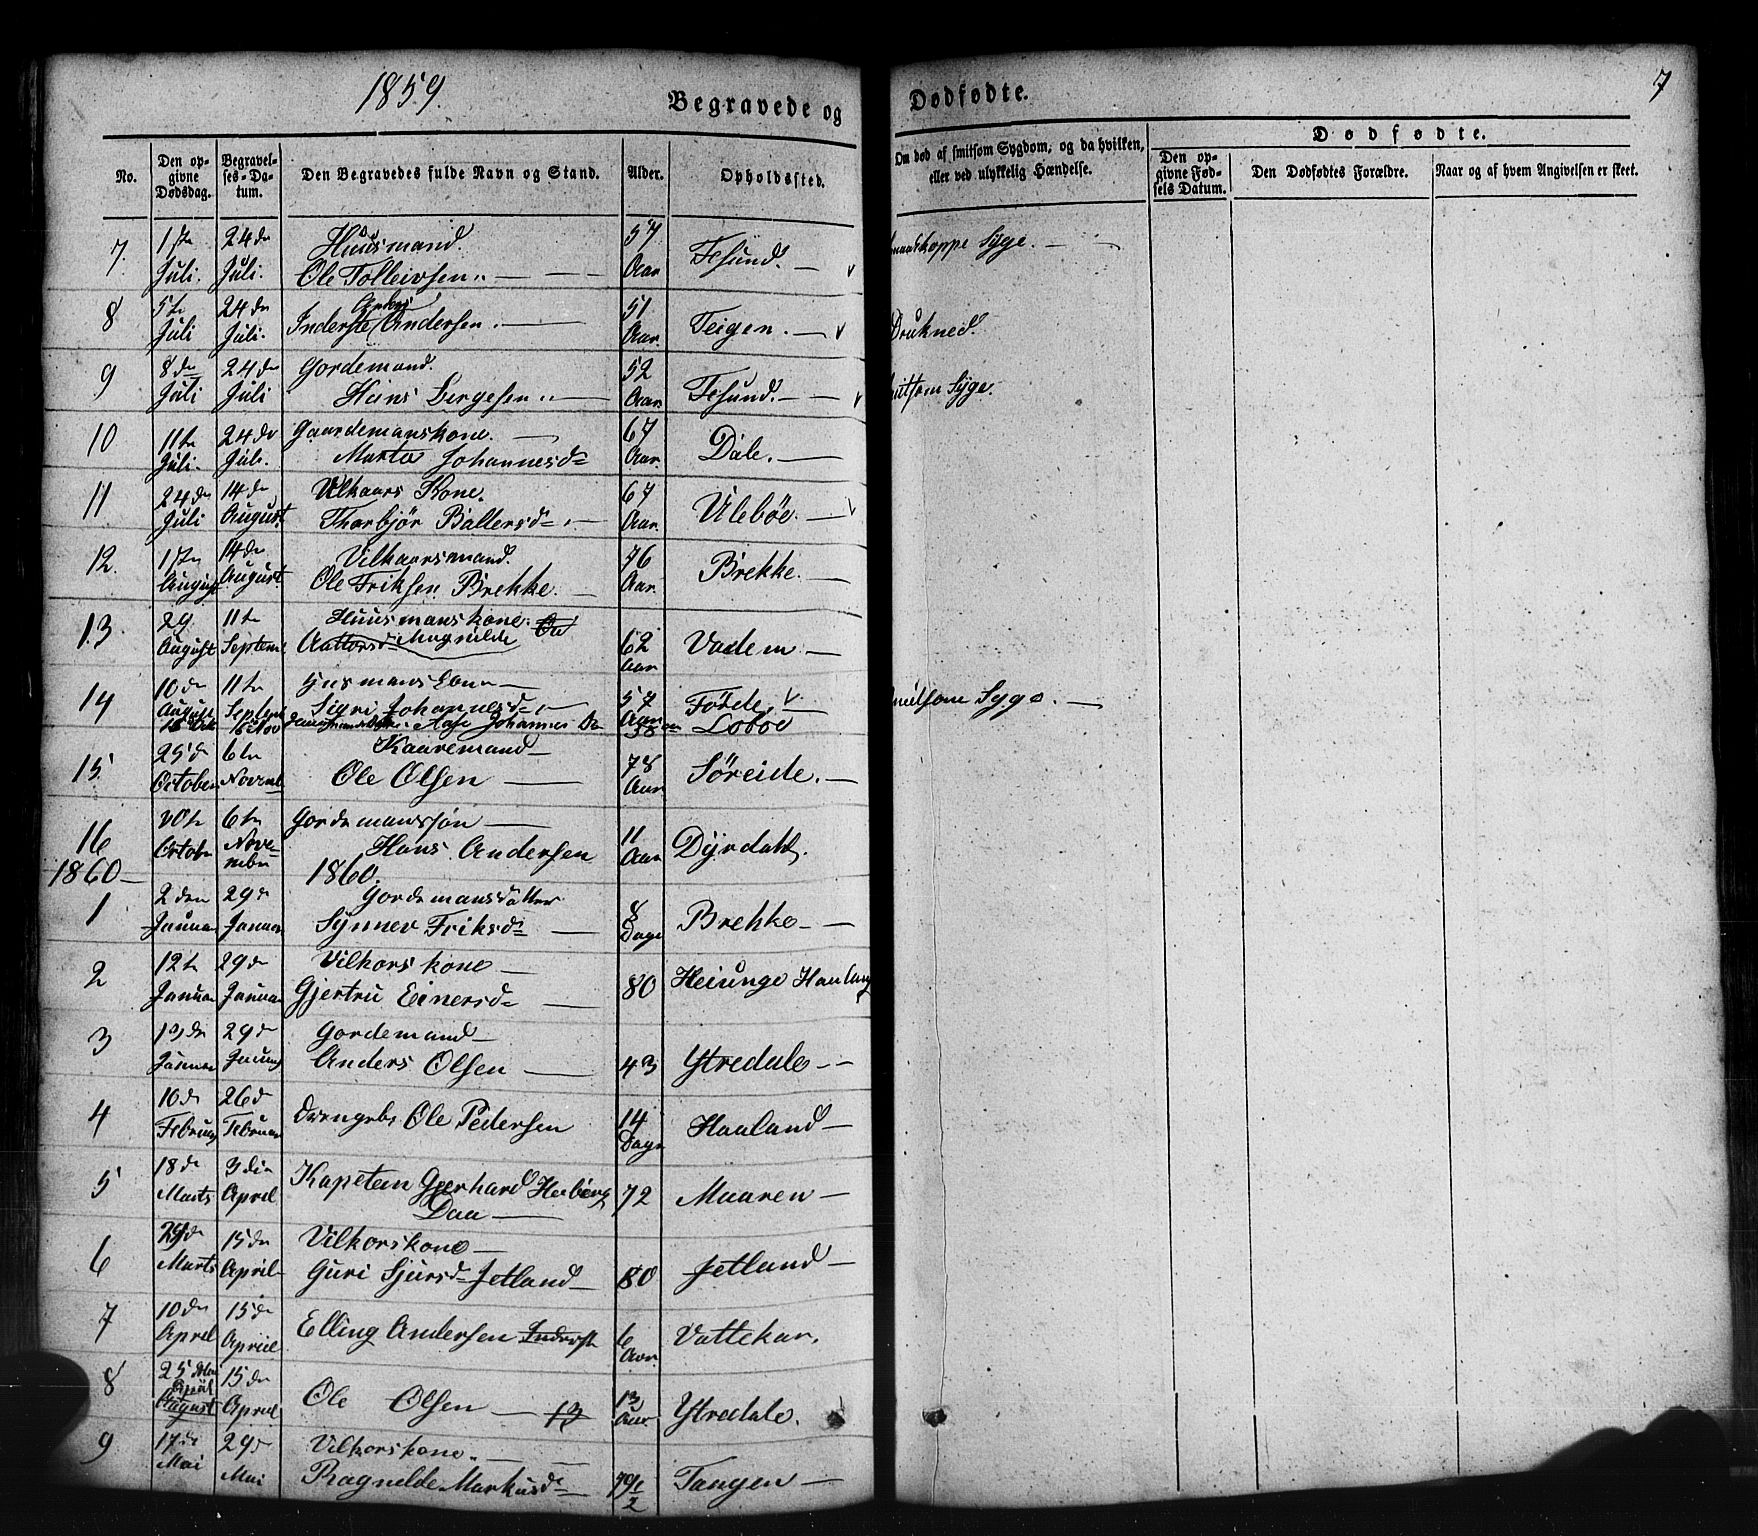 1859.
Begravede og
Dødfødte.
7
No.
Den op-
givne
Dødsdag.
Begravel-
ses-Da-
tum.
Den Begravedes fulde Navn og Stand.
Alder.
Opholdssted.
Om død af smitsom Sygdom, og da hvilken,
eller ved ulykkelig Hændelse.
Dødfødte.
Den op-
givne Fød-
sels Datum.
Den Dødfødtes Forældre.
Naar og af hvem Angivelsen er skeet.
7. 1ste Juli. 24de Juli. Huusmand.
Ole Tolleivsen 57 Aar Tesund.
Syge.
8 5te Juli 24de Juli. Inderste Andersen. 51 Aar. Teigen.
Druknet.
9 8de Juli 24de Juli Gordemand.
Hans Bergesen 52 Aar. Tesund.
smitsom Syge.
10 11te Juli. 24de Juli. Gaardemanskone.
Marta Johannesd 67 Aar. Dale.
11 24de Juli 14de August. Vilkaars Kone.
Thorbjør Ballersd 67 Aar. Ulebøe.
12. 1ste August 14de August. Vilkaarsmand.
Ole Eriksen Brekke. 76 Aar. Brekke.
13 29 August 11te Septemb Huusmanskone.
Magnilde 62 Aar Vadem
14 10de August 11te Septemb Husmanskone
Sigri Johannesd 57 Aar Førde.
smitsom Syge
Aase Johannes Da 38 Lobøe
15. 25d October 6te Novemb Kaaremand
Ole Olsen 78 Aar Søreide.
16 20te October 6te Novemb Gordemanssøn
Hans Andersen 11 Aar Dyrdahl.
1860 1860.
1 2den Januar 29d Januar Gordemansdatter
Synnev Eriksd 8 Dage Brekke
2 12te Januar 29de Januar Vilkors kone
Gjertru Einersd 80 Heiunge
3 13de Januar 29de Januar Gordemand
Anders Olsen 43 Ytredale
4 10de Februar 26d Februar Drengebr Ole Pedersen 14 Dage Haaland
5 18de Marts 3die April Kapetein Gjerhard
Daa 72 Maaren
6 Marts 15de April Vilkorskone
Guri Sjursd Jetland 80 Jetland
7 10de April 15de April Elling Andersen Inderst 6 Aar. Vattekar.
8 25 August 15de April Ole Olsen 13 13 Aar Ytredale.
9 17de Mai 29d Mai Vilkorskone.
Ragnilde Markusd 79 1/2 Tangen